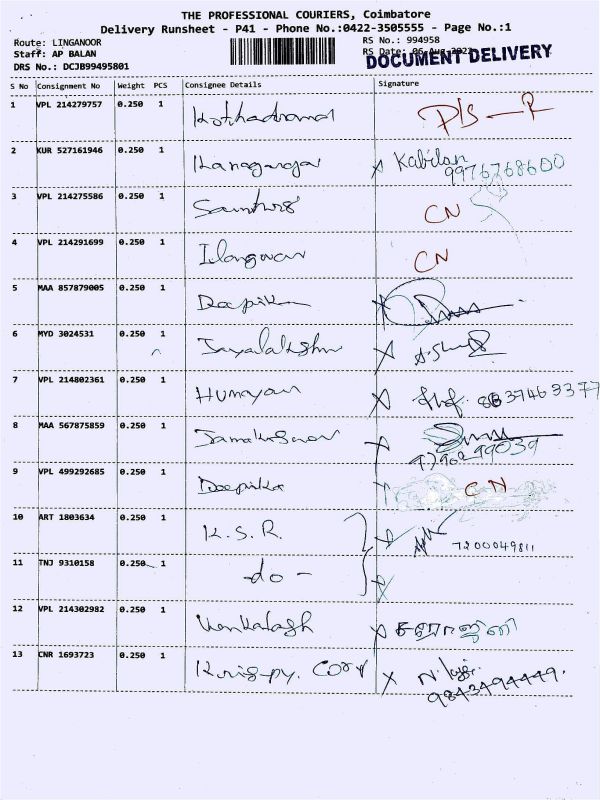 THE PROFESSIONAL COURIERS, Coimbatore
Delivery Runsheet - P41 - Phone No.:0422-3505555 - Page No.:1
Route: LINGANOOR
RS No.: 994958
Staff: AP BALAN
RS Date: 06-Aug-2022
DOCUMENT DELIVERY
DRS No.: DCJB99495801
S No Consignment No Weight PCS Consignee Details Signature
1 VPL 214279757 0.250 1
2 KUR 527161946 0.250 1 Kanagaraj Kabilan
9976768600
3 VPL 214275586 0.250 1 CN
4 VPL 214291699 0.250 1 Ilangovan CN
5 MAA 857879005 0.250 1 Deepika
6 MYD 3024531 0.250 1 Jayalakshmi
7 VPL 214802361 0.250 1 Humayan
8 MAA 567875859 0.250 1
9 VPL 499292685 0.250 1 Deepika CN
10 ART 1803634 0.250 1 K. S. R.
7200049811
11 TNJ 9310158 0.250 1 - do -
12 VPL 214302982 0.250 1 Venkatash சரோஜினி
13 CNR 1693723 0.250 1 Krispy. Corp
9843494449.